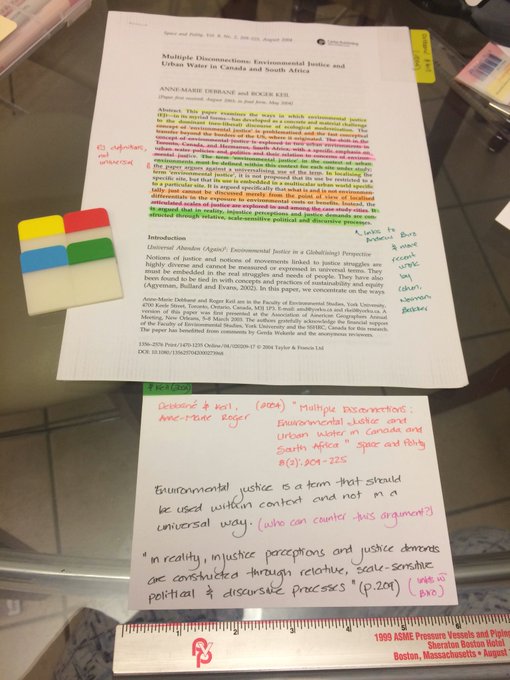 Space and Polity, Vol. 8, No. 2, 209–225, August 2004
Multiple Disconnections: Environmental Justice and
Urban Water in Canada and South Africa
ANNE-MARIE DEBBANÉ and ROGER KEIL
[Paper first received, August 2003; in final form, May 2004]
Abstract. This paper examines the ways in which environmental justice
(EJ)—in its myriad forms—has developed as a concrete and material challenge
to the dominant (neo-liberal) discourse of ecological modernization. The
concept of 'environmental justice' is problematised and the fast conceptual
transfer beyond the borders of the US, where it originated. The shift in the
concept of environmental justice is explored in two urban environments in
Toronto, Canada, and Hermanus, South Africa, with a specific emphasis on
urban water policies and politics and their relation to concerns of environ-
mental justice. The term 'environmental justice' in the context of urban
environments must be defined within this context for each site under study;
the paper argues against a universalising use of the term. In localising the
term 'environmental justice', it is not proposed that its use be restricted to a
specific site, but that its use is embedded in a multiscalar urban world specific
to a particular site. It is argued specifically that what is and is not environmen-
tally just cannot be discussed merely from the point of view of localised
differentials in the exposure to environmental costs or benefits. Instead, the
articulated scales of justice are explored in and among the case study cities. It
is argued that in reality, injustice perceptions and justice demands are con-
structed through relative, scale-sensitive political and discursive processes.
EJ definitions,
not
universal
↑ links to
Andrew Biro
& more
recent
work
by
Cohen,
Norman,
Bakker
Introduction
Universal Abandon (Again)?: Environmental Justice in a Globalis(z)ing Perspective
Notions of justice and notions of movements linked to justice struggles are
highly diverse and cannot be measured or expressed in universal terms. They
must be embedded in the real struggles and needs of people. They have also
been found to be tied in with concepts and practices of sustainability and equity
(Agyeman, Bullard and Evans, 2002). In this paper, we concentrate on the ways
Anne-Marie Debbané and Roger Keil are in the Faculty of Environmental Studies, York University,
4700 Keele Street, Toronto, Ontario, Canada, M3J 1P3. E-mail: amd@yorku.ca and rkeil@yorku.ca. A
version of this paper was first presented at the Association of American Geographers Annual
Meeting, New Orleans, 5–8 March 2003. The authors gratefully acknowledge the financial support
of the Faculty of Environmental Studies, York University and the SSHRC, Canada for this research.
The paper has benefited from comments by Gerda Wekerle and the anonymous reviewers.
1356-2576 Print/1470-1235 Online/04/020209-17 © 2004 Taylor & Francis Ltd
DOI: 10.1080/1356257042000273968
& Keil (2004)
Debbané & Keil, (2004) "Multiple Disconnections:
Anne-Marie Roger Environmental Justice and
Urban Water in Canada and
South Africa" Space and Polity
8(2): 209-225
Environmental justice is a term that should
be used within context and not in a
universal way. (who can counter this argument?)
"In reality, injustice perceptions and justice demands
are constructed through relative, scale-sensitive
political & discursive processes" (p.209) (links w
Biro)
1 2 3 4 5 6
1999 ASME Pressure Vessels and Piping
Sheraton Boston Hotel
Boston, Massachusettes • August